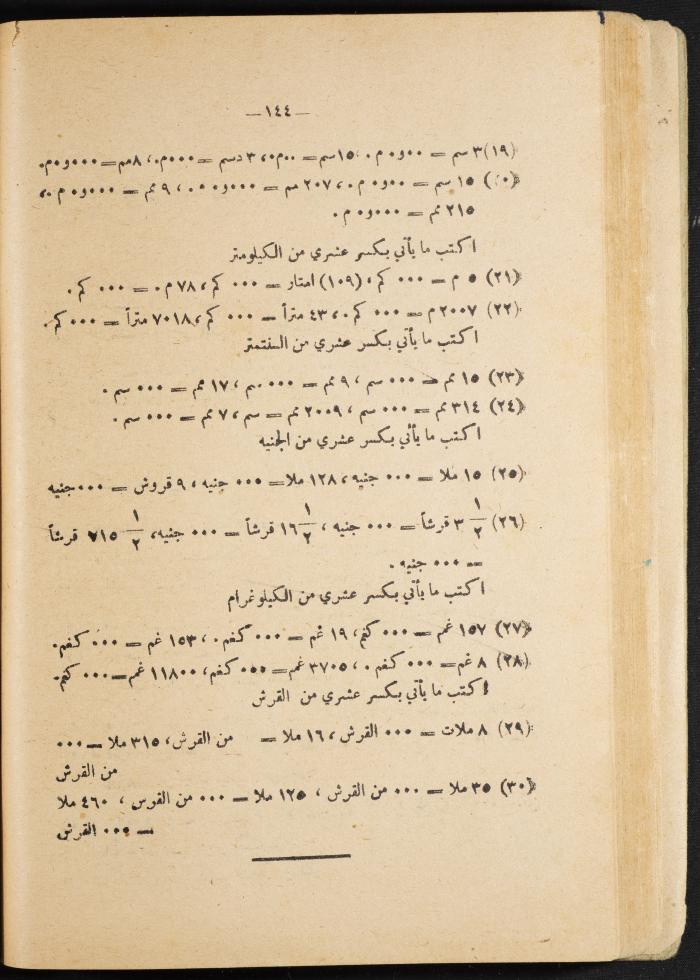 —١٤٤—
(١٩) ٣ سم = ٠٠و٠ م٠، ١٥سم= ٠٠م٠، ٣ دسم = ٠٠٠م٠، ٨مم=٠٠٠و٠م٠
١٥ سم = ٠٠و٠ م٠، ٢٠٧ مم = ٠٠٠و٠٠، ٩ مم = ٠٠٠و٠ م٠،
٢١٥ مم = ٠٠٠و٠ م٠
اكتب ما يأتي بكسر عشري من الكيلومتر
(٢١) ٥ م = ٠٠٠ كم، (١٠٩) امتار = ٠٠٠ كم، ٧٨ م٠ = ٠٠٠ كم٠
(٢٢) ٢٠٠٧ م= ٠٠٠ كم٠، ٤٣ متراً = ٠٠٠ كم، ٧٠١٨ متراً = ٠٠٠ كم٠
اكتب ما يأتي بكسر عشري من السنتمتر
(٢٣) ١٥ مم = ٠٠٠ سم، ٩ مم = ٠٠٠ سم، ١٧ مم = ٠٠٠ سم٠
(٢٤) ٣١٤ مم = ٠٠٠ سم، ٢٠٠٩ مم = سم، ٧ مم = ٠٠٠ سم٠
اكتب ما يأتي بكسر عشري من الجنيه
(٢٥) ١٥ ملا = ٠٠٠ جنيه، ١٢٨ ملا= ٠٠٠ جنيه، ٩ قروش = ٠٠٠جنيه
(٢٦) ١/٢ ٣ قرشاً = ٠٠٠ جنيه، ١/٢ ١٦ قرشاً = ٠٠٠ جنيه، ١/٢ ٧١٥ قرشاً
= ٠٠٠ جنيه٠
اكتب ما يأتي بكسر عشري من الكيلوغرام
(٢٧) ١٥٧ غم = ٠٠٠ كغم، ١٩ غم = ٠٠٠ كغم٠، ١٥٣ غم = ٠٠٠ كغم٠
(٢٨) ٨ غم= ٠٠٠ كغم٠، ٣٧٠٥ غم= ٠٠٠ كغم، ١١٨٠٠ غم=٠٠٠ كغم٠
اكتب ما يأتي بكسر عشري من القرش
(٢٩) ٨ ملات = ٠٠٠ القرش، ١٦ ملا = من القرش، ٣١٥ ملا =٠٠٠
من القرش
(٣٠) ٣٥ ملا = ٠٠٠ من القرش، ١٢٥ ملا = ٠٠٠ من القرس، ٤٦٠ ملا
= ٠٠٠ القرش